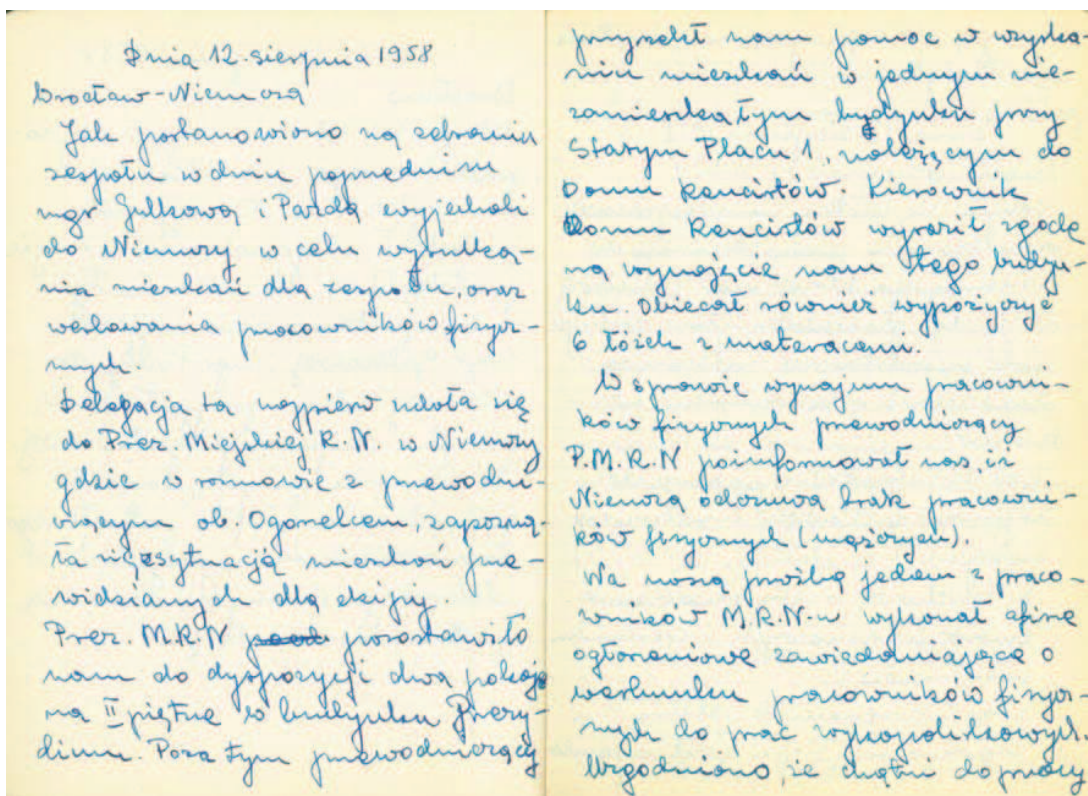 Dnia 12. sierpnia 1958
Wrocław-Niemcza
Jak postanowiono na zebraniu
zespołu w dniu poprzednim
mgr Gulkowa i Parda wyjechali
do Niemczy w celu wyszuka-
nia mieszkań dla zespołu, oraz
werbowania pracowników fizycz-
nych.
Delegacja ta najpierw udała się
do Prez. Miejskiej R.N. w Niemczy
gdzie w rozmowie z przewodni-
czącym ob. Ogonelcem, zapozna-
ła się z sytuacją mieszkań prze-
widzianych dla ekipy.
Prez. M.R.N pozostawiło
nam do dyspozycji dwa pokoje
na II piętrze w budynku Prezy-
dium. Poza tym przewodniczący
przyrzekł nam pomoc w uzyska-
niu mieszkań w jednym nie-
zamieszkałym budynku przy
Starym Placu 1., należącym do
Domu Rencistów. Kierownik
Domu Rencistów wyraził zgodę
na wynajęcie nam tego budyn-
ku. Obiecał również wypożyczyć
6 łóżek z materacami.
W sprawie wynajmu pracowni-
ków fizycznych przewodniczący
P.M.R.N poinformował nas, iż
Niemcza odczuwa brak pracowni-
ków fizycznych (mężczyzn).
Na naszą prośbę jeden z praco-
wników M.R.N-u wykonał afisz
ogłoszeniowe zawiadamiające o
werbunku pracowników fizycz-
nych do prac wykopaliskowych.
Uzgodniono, że chętni do pracy